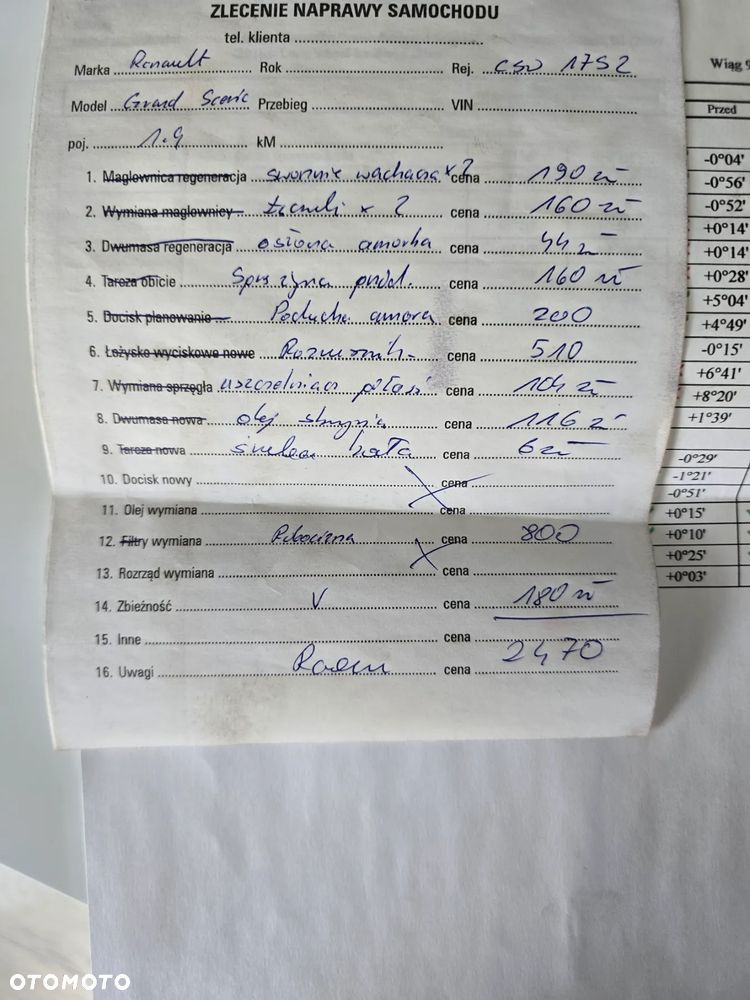 ZLECENIE NAPRAWY SAMOCHODU
tel. klienta
Marka Renault Rok Rej. CSW 1752
Model Grand Scenic Przebieg VIN
poj. 1.9 kM
1. Maglownica regeneracja sworznie wachacza x 2 cena 190 zł
2. Wymiana maglownicy Łączniki x 2 cena 160 zł
3. Dwumasa regeneracja osłona amorka cena 44 zł
4. Tarcza obicie Sprężyna przód. cena 160 zł
5. Docisk planowanie Poducha amora cena 200
6. Łożysko wyciskowe nowe cena 510
7. Wymiana sprzęgła uszczelniacz półosi cena 104 zł
8. Dwumasa nowa olej skrzynia cena 116 zł
9. Tarcza nowa cena 6 zł
10. Docisk nowy cena
11. Olej wymiana cena
12. Filtry wymiana Robocizna cena 800
13. Rozrząd wymiana cena
14. Zbieżność V cena 180 zł
15. Inne cena 2470
16. Uwagi Razem cena
Wiąg
Przed
-0°04'
-0°56'
-0°52'
+0°14'
+0°14'
+0°28'
+5°04'
+4°49'
-0°15'
+6°41'
+8°20'
+1°39'
-0°29'
-1°21'
-0°51'
+0°15'
+0°10'
+0°25'
+0°03'
OTOMOTO